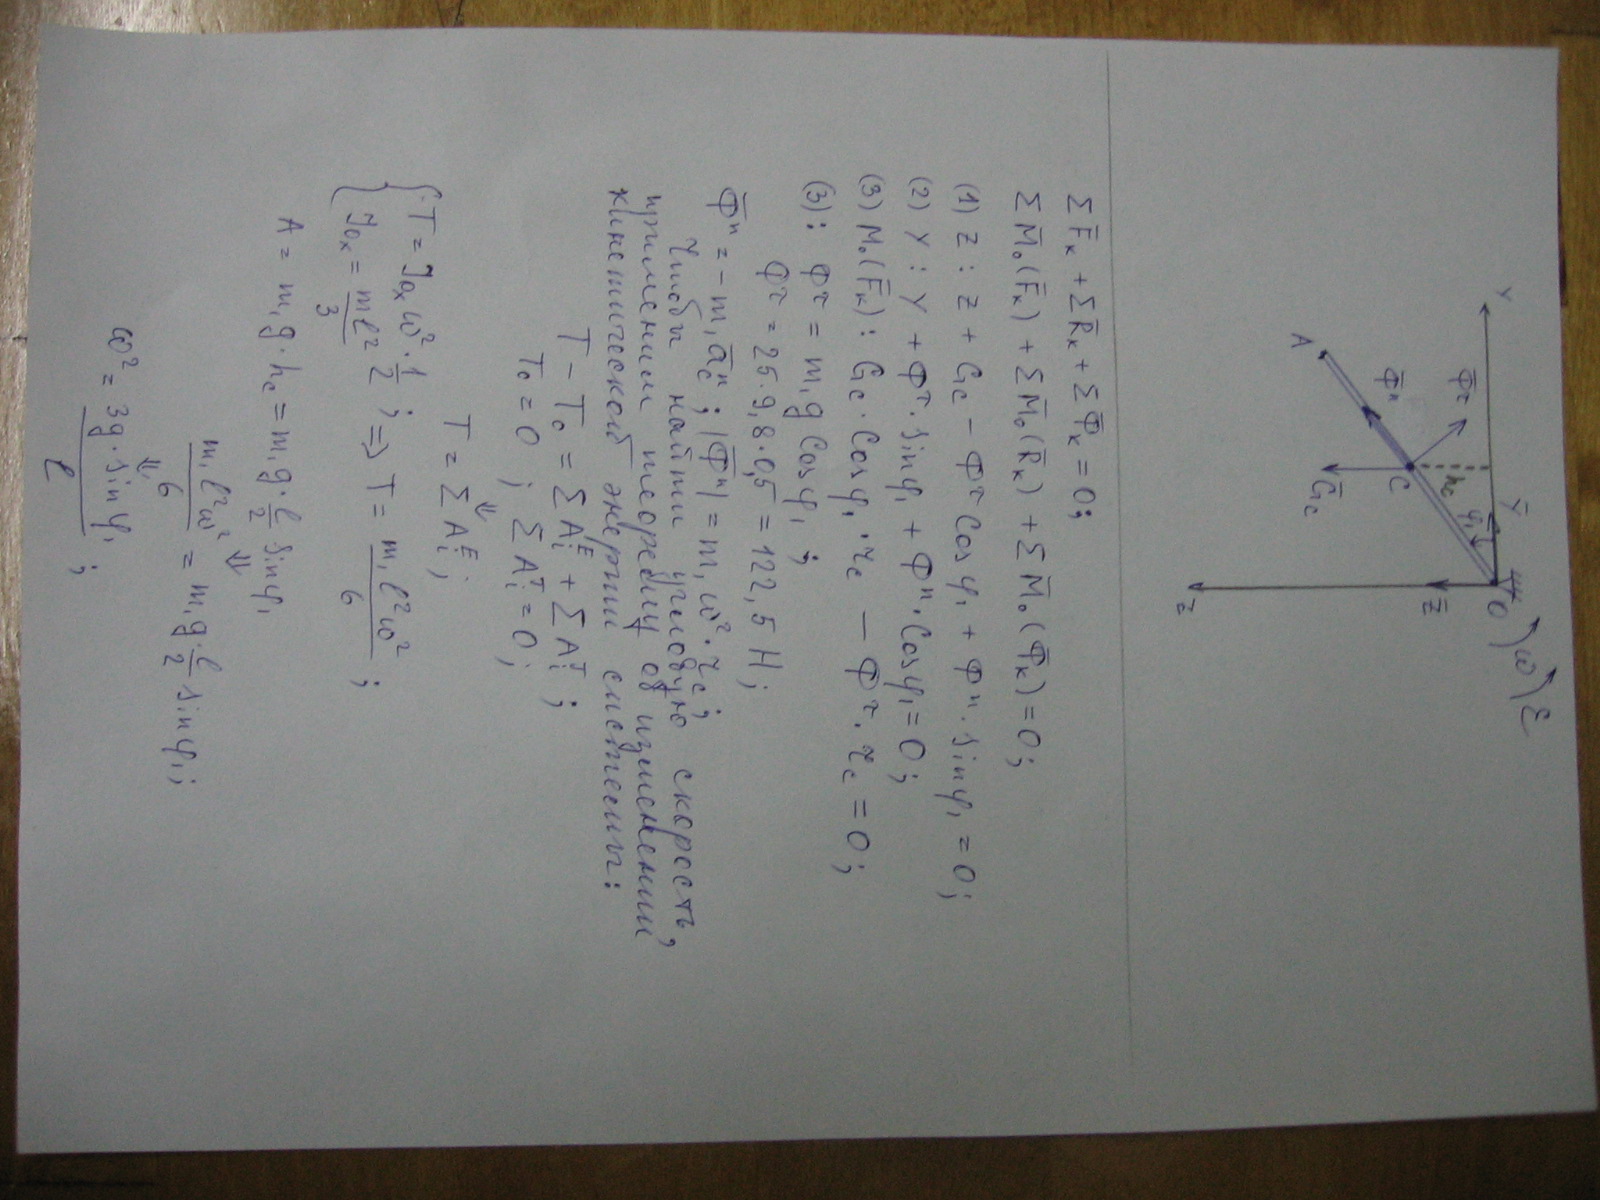 Y
Ȳ
O
ω
ε
φ₁
h_c
Φ̄^τ
Φ̄ⁿ
C
A
Ḡ_c
Z̄
z
ΣF̄ₖ + ΣR̄ₖ + ΣΦ̄ₖ = 0;
ΣM̄₀(F̄ₖ) + ΣM̄₀(R̄ₖ) + ΣM̄₀(Φ̄ₖ) = 0;
(1) z: z + G_c − Φ^τ Cosφ₁ + Φⁿ · sinφ₁ = 0;
(2) Y: Y + Φ^τ · sinφ₁ + Φⁿ · Cosφ₁ = 0;
(3) M₀(F̄ₖ): G_c · Cosφ₁ · r_c − Φ^τ · r_c = 0;
(3): Φ^τ = m₁g Cosφ₁;
Φ^τ = 25 · 9,8 · 0,5 = 122,5 Н;
Φ̄ⁿ = −m₁ā_cⁿ; |Φ̄ⁿ| = m₁ω² · r_c;
Чтобы найти угловую скорость,
применим теорему об изменении
кинетической энергии системы:
T − T₀ = ΣAᵢᴱ + ΣAᵢᴶ;
T₀ = 0; ΣAᵢᴶ = 0;
⇓
T = ΣAᵢᴱ;
{ T = J₀ₓω² · 1/2; ⇒ T = m₁l²ω²/6;
J₀ₓ = ml²/3
A = m₁g · h_c = m₁g · l/2 sinφ₁
⇓
m₁l²ω²/6 = m₁g · l/2 sinφ₁;
⇓
ω² = 3g · sinφ₁/l;